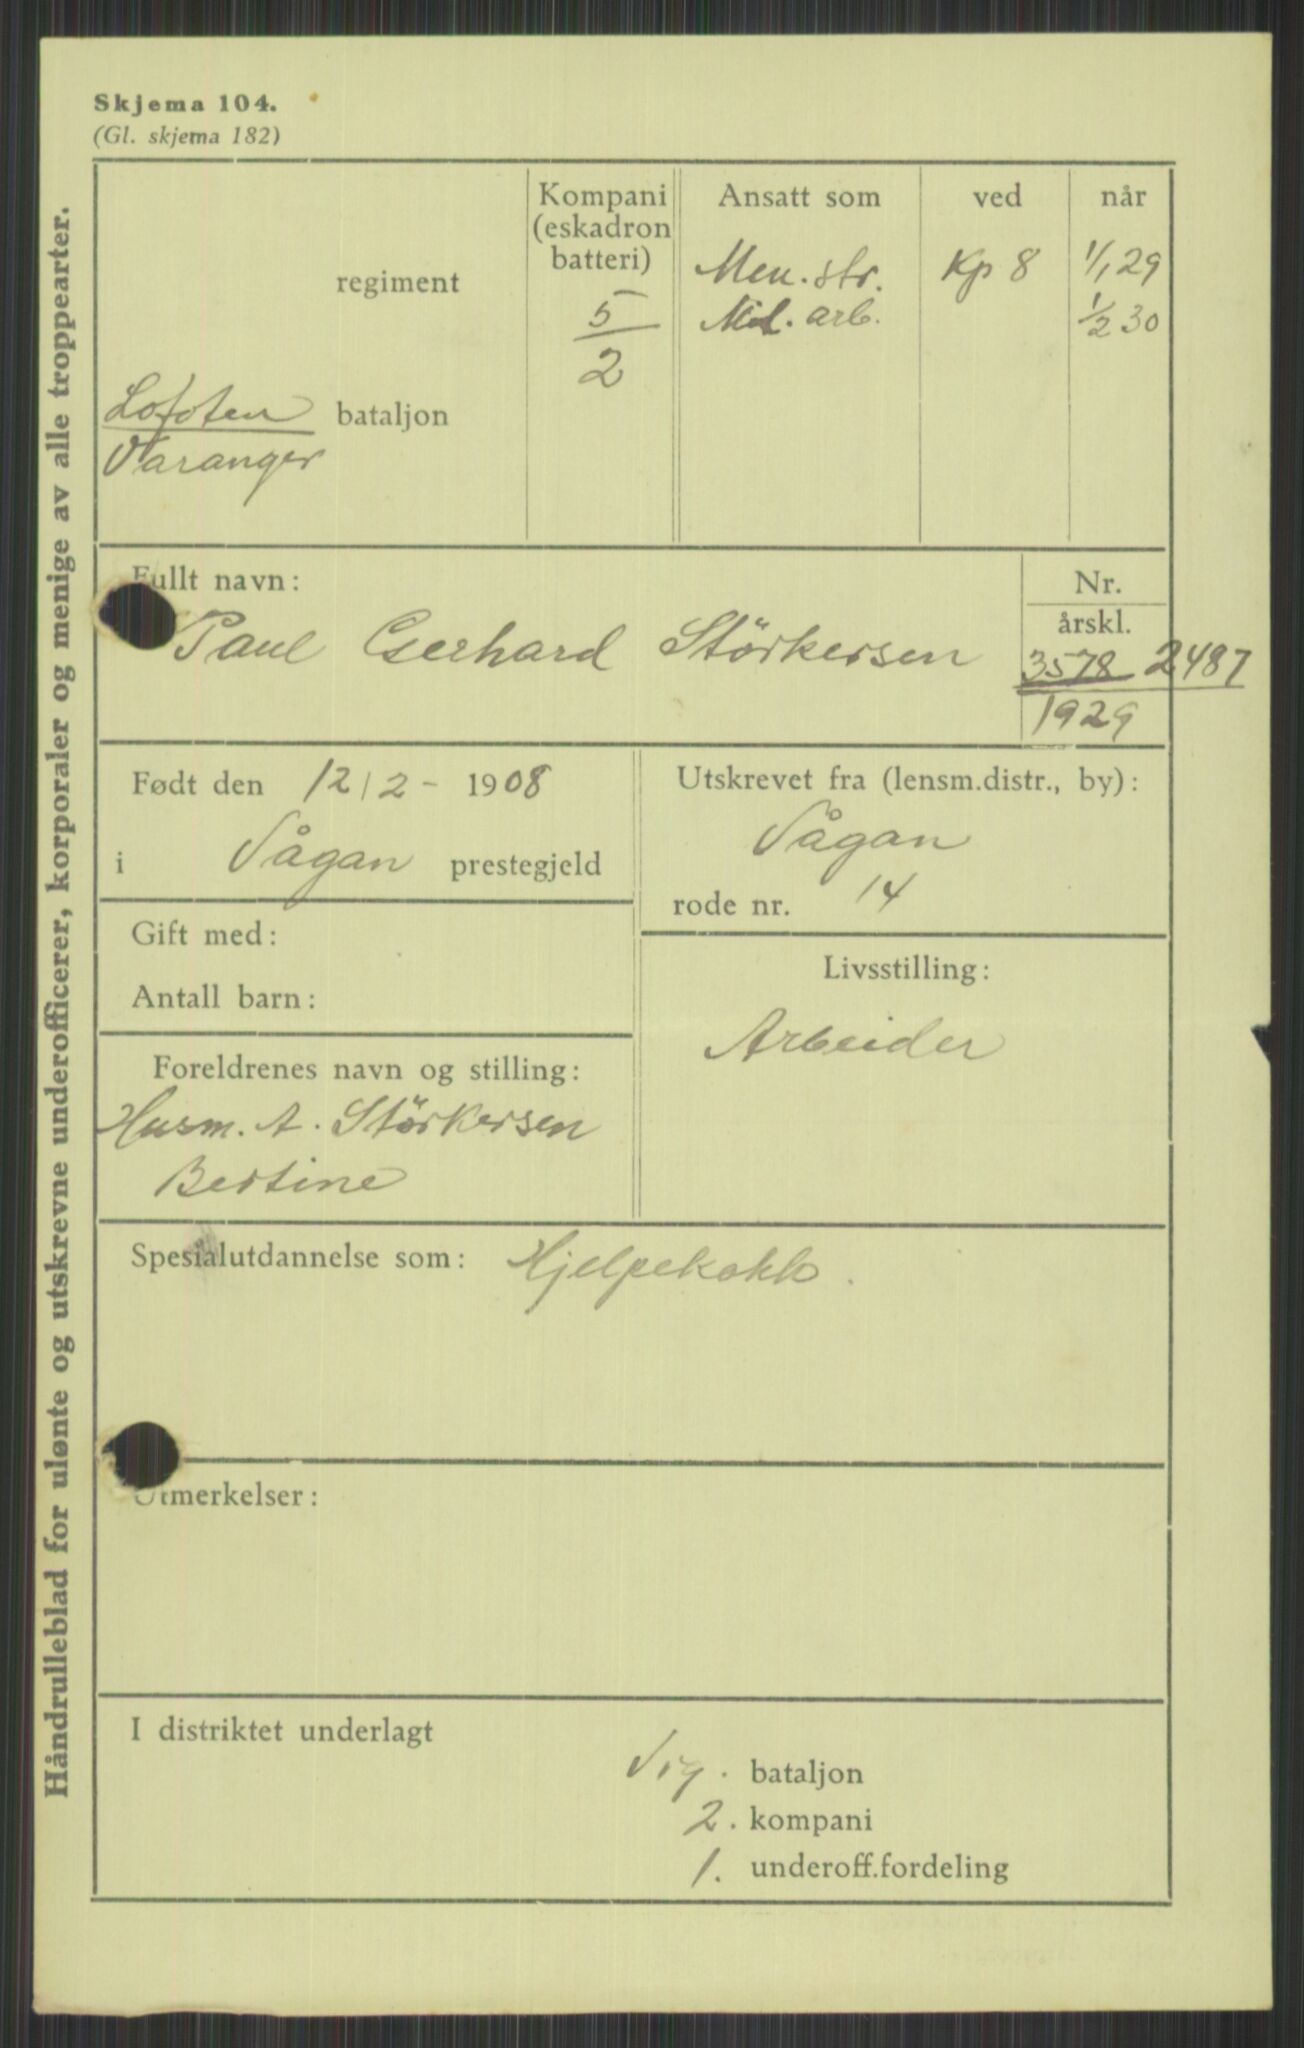 Skjema 104.
(Gl. skjema 182)
Håndrulleblad for ulønte og utskrevne underofficerer, korporaler og menige av alle troppearter.
regiment
Lofoten bataljon
Varanger
Kompani
(eskadron
batteri)
5
2
Ansatt som ved når
Men. str. Kp 8 1/1 29
Mil. arb. 1/2 30
Fullt navn:
Paul Gerhard Størkersen
Nr.
årskl.
3578 2487
1929
Født den 12/2 - 1908
i Vågan prestegjeld
Utskrevet fra (lensm.distr., by):
Vågan
rode nr. 14
Gift med:
Antall barn:
Livsstilling:
Arbeider
Foreldrenes navn og stilling:
Husm. A. Størkersen
Bertine
Spesialutdannelse som: Hjelpekokk.
Utmerkelser:
I distriktet underlagt
Vig. bataljon
2. kompani
1. underoff.fordeling